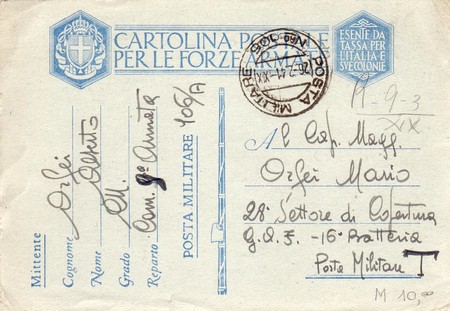 CARTOLINA POSTALE
PER LE FORZE ARMATE
ESENTE DA
TASSA PER
L'ITALIA E
SVE COLONIE
POSTA MILITARE
No 106
26.7.41.XIX
M-9-3
XIX
Al Cap. Magg.
Orfei Mario
28° Settore di Copertura
G.a.F. - 16ª Batteria
Posta Militare T
M 10,00
Mittente
Cognome Orfei
Nome
Grado
Reparto Com. 9ª Armata
POSTA MILITARE 106/A